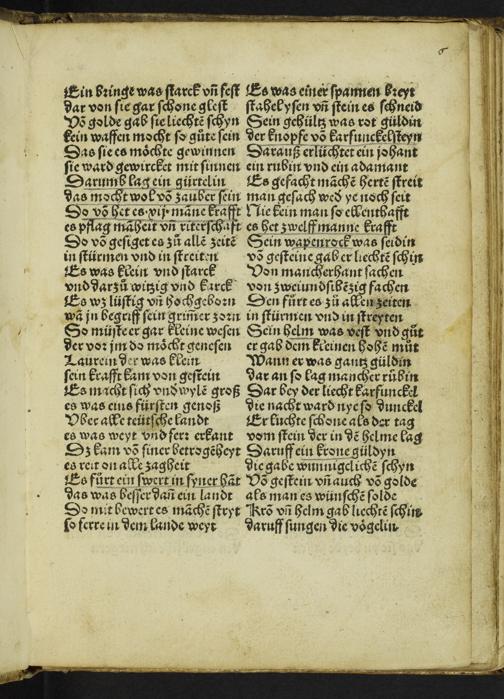 6
Ein bringe was starck vñ fest
dar von sie gar schone glest
Võ golde gab sie liechtẽ schyn
kein waffen mocht so gůte sein
Das sie es möchte gewinnen
sie ward gewircket mit sinnen
Darumb lag ein gürtelin
das mocht wol võ zauber sein
Do võ het es·xij·mãne krafft
es pflag mãheit vñ ritterschafft
Do võ gesiget es zů allẽ zeitẽ
in stürmen vnd in streiten
Es was klein vnd starck
vnd darzů witzig vnd karck
Es wz lüstig vñ hochgeborn
wã jn begriff sein grim̃er zorn
So můste er gar kleine wesen
der vor jm do möcht genesen
Laurein der was klein
sein krafft kam von gestein
Es macht sich vnd wylẽ groß
es was eins fürsten genoß
Vber alle teütsche landt
es was weyt vnd ferr erkant
Dz kam võ siner betrogẽheyt
es reit on alle zagheit
Es fürt ein swert in syner hãt
das was besser dañ ein landt
Do mit bewert es mãchẽ streyt
so ferre in dem lande weyt
Es was einer spannen breyt
stahel ysen vñ stein es schneid
Sein gehültz was rot güldin
der knopfe võ karfunckelsteyn
Darauß erlüchtet ein johant
ein rubin vnd ein adamant
Es gefacht mãchẽ hertẽ streit
man gesach wed ye noch seit
Nie kein man so ellenthafft
es het zwelff manne krafft
Sein wapenrock was seidin
võ gesteine gab er liechtẽ schijn
Von mancherhant sachen
von zweiundsibẽzig fachen
Den fürt es zů allen zeiten
in stürmen vnd in streyten
Sein helm was vest vnd gůt
er gab dem kleinen hohẽ můt
Wann er was gantz güldin
dar an so lag mancher rubin
Dar bey der liecht karfunckel
die nacht ward nye so dunckel
Er luchte schone als der tag
vom stein der in dẽ helme lag
Daruff ein krone güldyn
die gabe wunnigclichẽ schyn
Võ gestein vñ auch võ golde
als man es wünschẽ solde
Krõ vñ helm gab liechtẽ schin
daruff sungen die vögelin